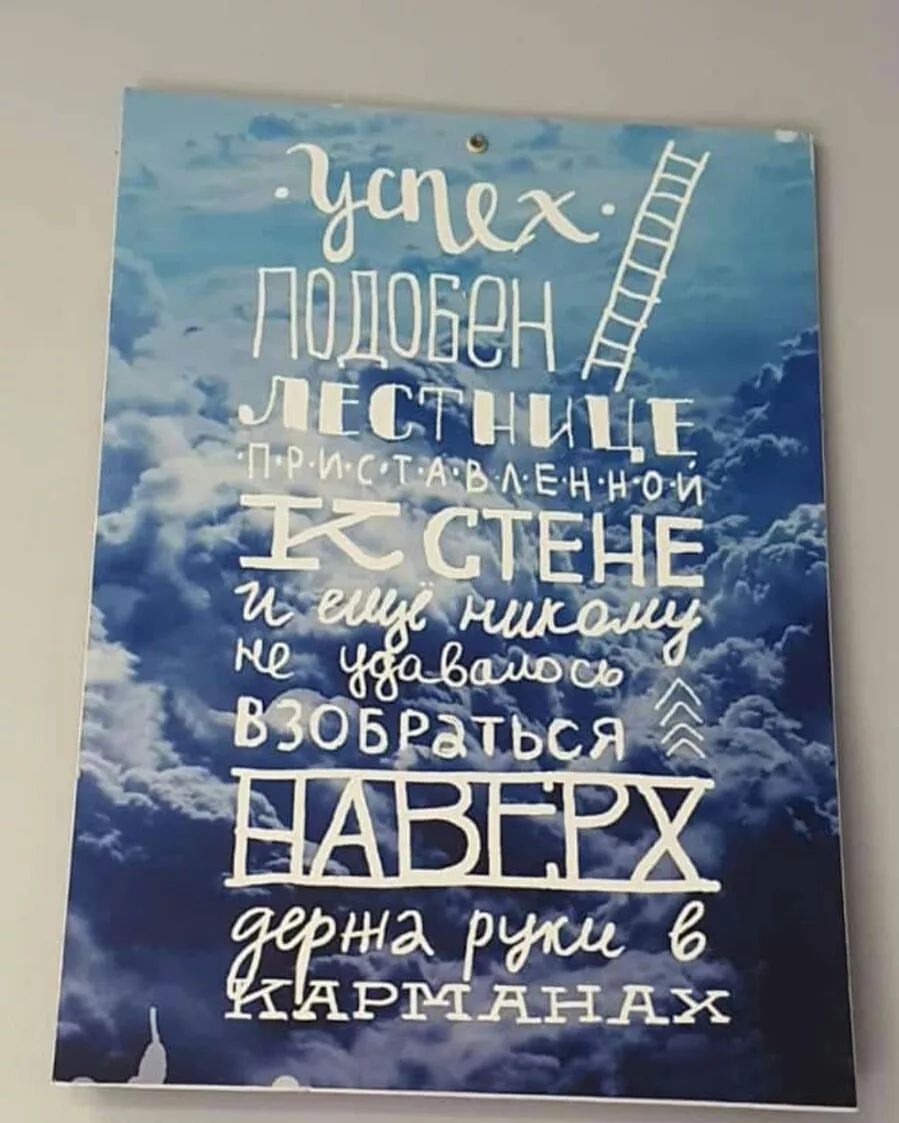 ·Успех·
ПОДОБеН
ЛЕСТНИЦЕ
·П·Р·И·С·Т·А·В·Л·Е·Н·Н·О·Й
К СТЕНЕ
и ещё никому
не удавалось
ВЗОБРаТЬСЯ
НАВЕРХ
держа руки в
КАРМАНАХ